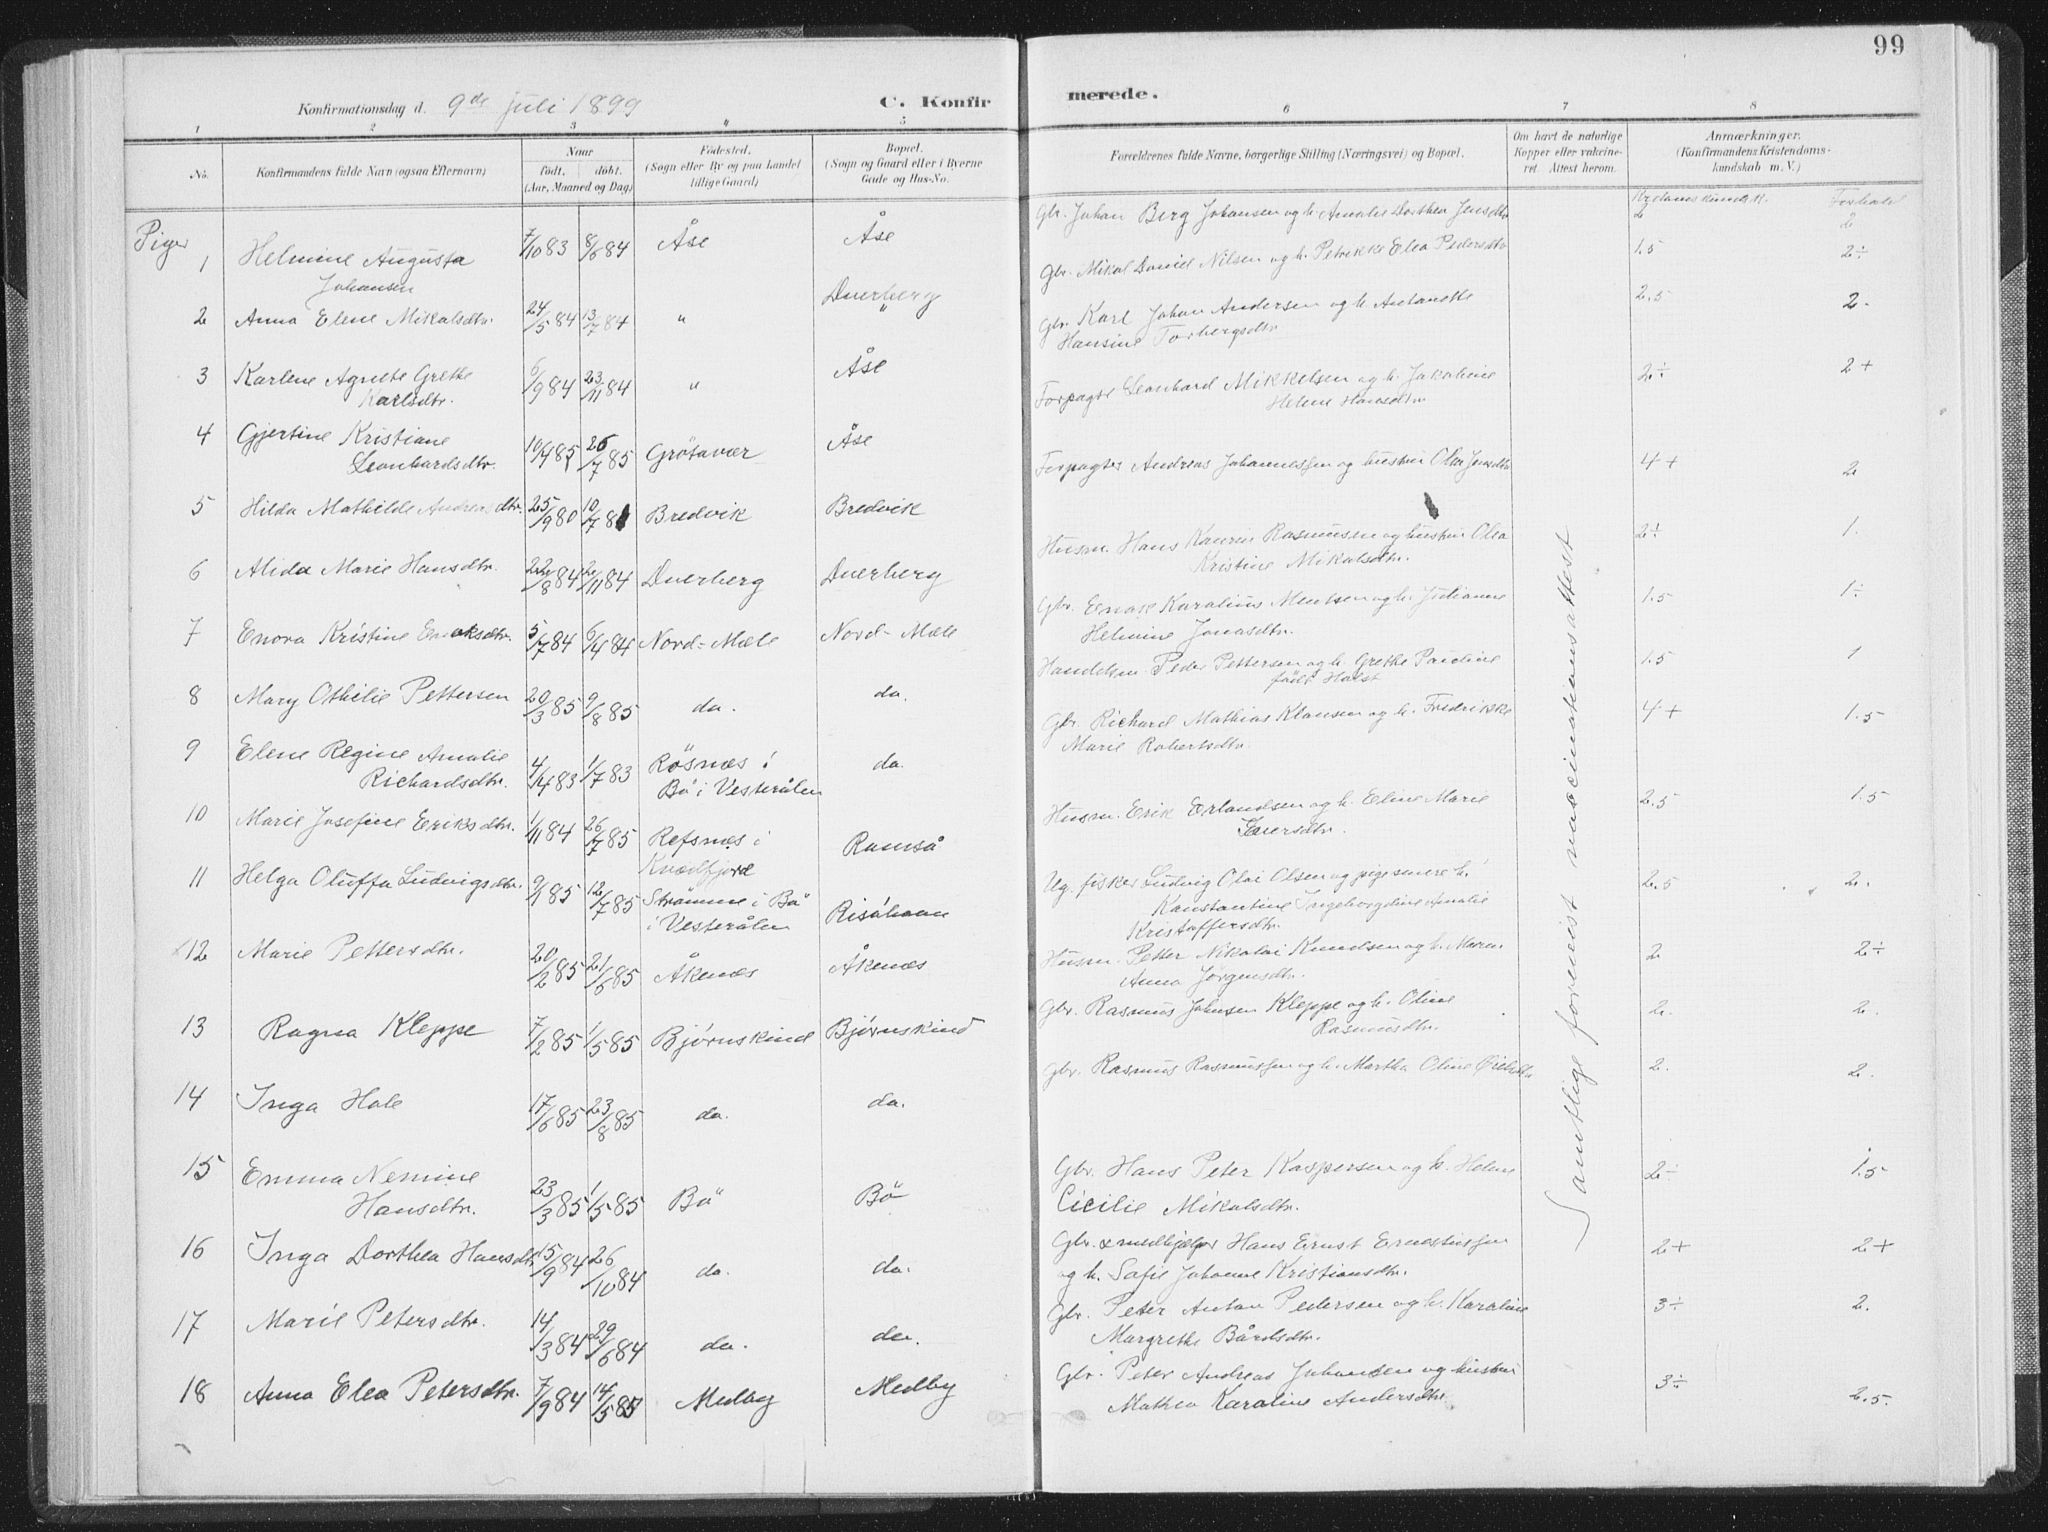 99
Konfirmationsdag d. 9de Juli 1899
C. Konfir
merede.
1 2 3 4 5 6 7 8
No.
Konfirmandens fulde Navn (ogsaa Efternavn)
Naar
født. døbt.
(Aar, Maaned og Dag)
Fødested.
(Sogn eller By og paa Landet
tillige Gaard)
Bopæl.
(Sogn og Gaard eller i Byerne
Gade og Hus-No.
Forældrenes fulde Navne, borgerlige Stilling (Næringsvei) og Bopæl.
Om havt de naturlige
Kopper eller vakcine-
ret. Attest herom.
Anmærkninger.
(Konfirmandens Kristendoms-
kundskab m. V.)
Krdomskundsk. Forhold
Piger
1 Helmine Augusta
Johansen
7/10 83 8/6 84 Åse Åse
Gbr. Johan Berg Johansen og h. Amalie Dorthea Jensdtr
2 2
2 Anna Elene Mikalsdtr. 24/5 84 13/7 84 " Duerberg
"
Gbr. Mikal Daniel Nilsen og h. Petrikke Elea Pedersdtr
1.5 2÷
3 Karlene Agnete Grethe
Karlsdtr.
6/9 84 23/11 84 " Åse
Gbr. Karl Johan Andersen og h. Antonette
Hansine Torbergsdtr
2.5 2.
4 Gjertine Kristiane
Leonhardsdtr.
10/4 85 26/7 85 Grötavær Åse
Forpagte Leonhard Mikkelsen og h. Jakobine
Helene Hansdtr.
2÷ 2+
5 Hilda Mathilde Andreasdtr. 25/9 80 10/7 81 Bredvik Bredvik
Forpagter Andreas Johannessen og hustru Oline Jensdtr
4+ 2
6 Alida Marie Hansdtr. 22/8 84 2/11 84 Duerberg Duerberg
Husm. Hans Rasmussen og hustru Olea
Kristine Mikalsdtr.
2÷ 1.
7 Enora Kristine Enoksdtr. 5/7 84 6/4 84 Nord-Mæle Nord-Mæle
Gbr. Enok Karolius Mentsen og h. Julianne
Helmine Jonasdtr.
1.5 1÷
8 Mary Othilie Pettersen 20/3 85 9/8 85 do. do.
Handelsm. Peder Pettersen og h. Grethe Pauline
født Holst
1.5 1
9 Elene Regine Amalie
Richardsdtr.
4/4 83 1/7 83 Rösnæs i
Bö i Vesterålen
do.
Gbr. Richard Mathias Klausen og h. Fredrikke
Marie Robertsdtr.
4+ 1.5
10 Marie Josefine Eriksdtr. 1/11 84 26/7 85 Refsnæs i
Kvædfjord
Ramså
Husm. Erik Erlandsen og h. Eline Marie
Iversdtr.
2.5 1.5
11 Helga Oluffa Ludvigsdtr. 9/1 85 12/7 85 Strømme i Bö
i Vesterålen
Risöhavn
Ug. fisker Ludvig Olai Olsen og pige senere h.
Konstantine Ingeborgdine Amalie
Kristoffersdtr.
2.5 2.
12 Marie Pettersdtr. 20/2 85 21/6 85 Åkenæs Åkenæs
Husm. Petter Nikolai Knudsen og h. Maren
Anna Jörgensdtr.
2 2÷
13 Ragna Kleppe 7/2 85 1/5 85 Bjørnskind Bjørnskind
Gbr. Rasmus Johnsen Kleppe og h. Oline
Rasmusdtr.
2. 2.
14 Inga Hole 17/6 85 23/8 85 do. do.
Gbr. Rasmus Rasmussen og h. Martha Oline
2. 2.
15 Emma Nemine
Hansdtr.
23/3 85 1/5 85 Bö Bö
Gbr. Hans Peter Kaspersen og h. Helene
Cicilie Mikalsdtr.
2÷ 1.5
16 Inga Dorthea Hansdtr 15/9 84 26/10 84 do. do.
Gbr. & medhjælper Hans Ernst Ernestussen
og h. Sofie Johanne Kristiansdtr.
2+ 2+
17 Marie Petersdtr. 14/3 84 29/6 84 do. do.
Gbr. Peter Anton Pedersen og h. Karoline
Margrethe Bårdsdtr.
3÷ 2.
18 Anna Elea Petersdtr. 7/9 84 14/5 85 Medby Medby
Gbr. Peter Andreas Johansen og hustru
Mathea Karolius Andersdtr.
3÷ 2.5.
Samtlige forevist vaccinationsattest